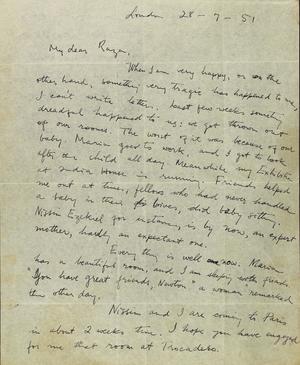 London 28-7-51
My dear Raza,
When I am very happy, or on the
other hand, something very tragic has happened to me,
I can't write letters. Last few weeks something
dreadful happened to us: we got thrown out
of our rooms. The worst of it was because of our
baby. Maria goes to work, and I got to look
after our child all day. Meanwhile my Exhibition
at India House is running. Friends helped
me out at times, fellows who had never handled
a baby in their lives, did baby sitting.
Nissim Ezekiel for instance, is by now, an expert
mother, hardly an expectant one.
Everything is well now. Maria
has a beautiful room, and I am staying with friends.
"You have great friends, Newton" a woman remarked
the other day.
Nissim and I are coming to Paris
in about 2 weeks time. I hope you have engaged
for me that room at Trocadero.